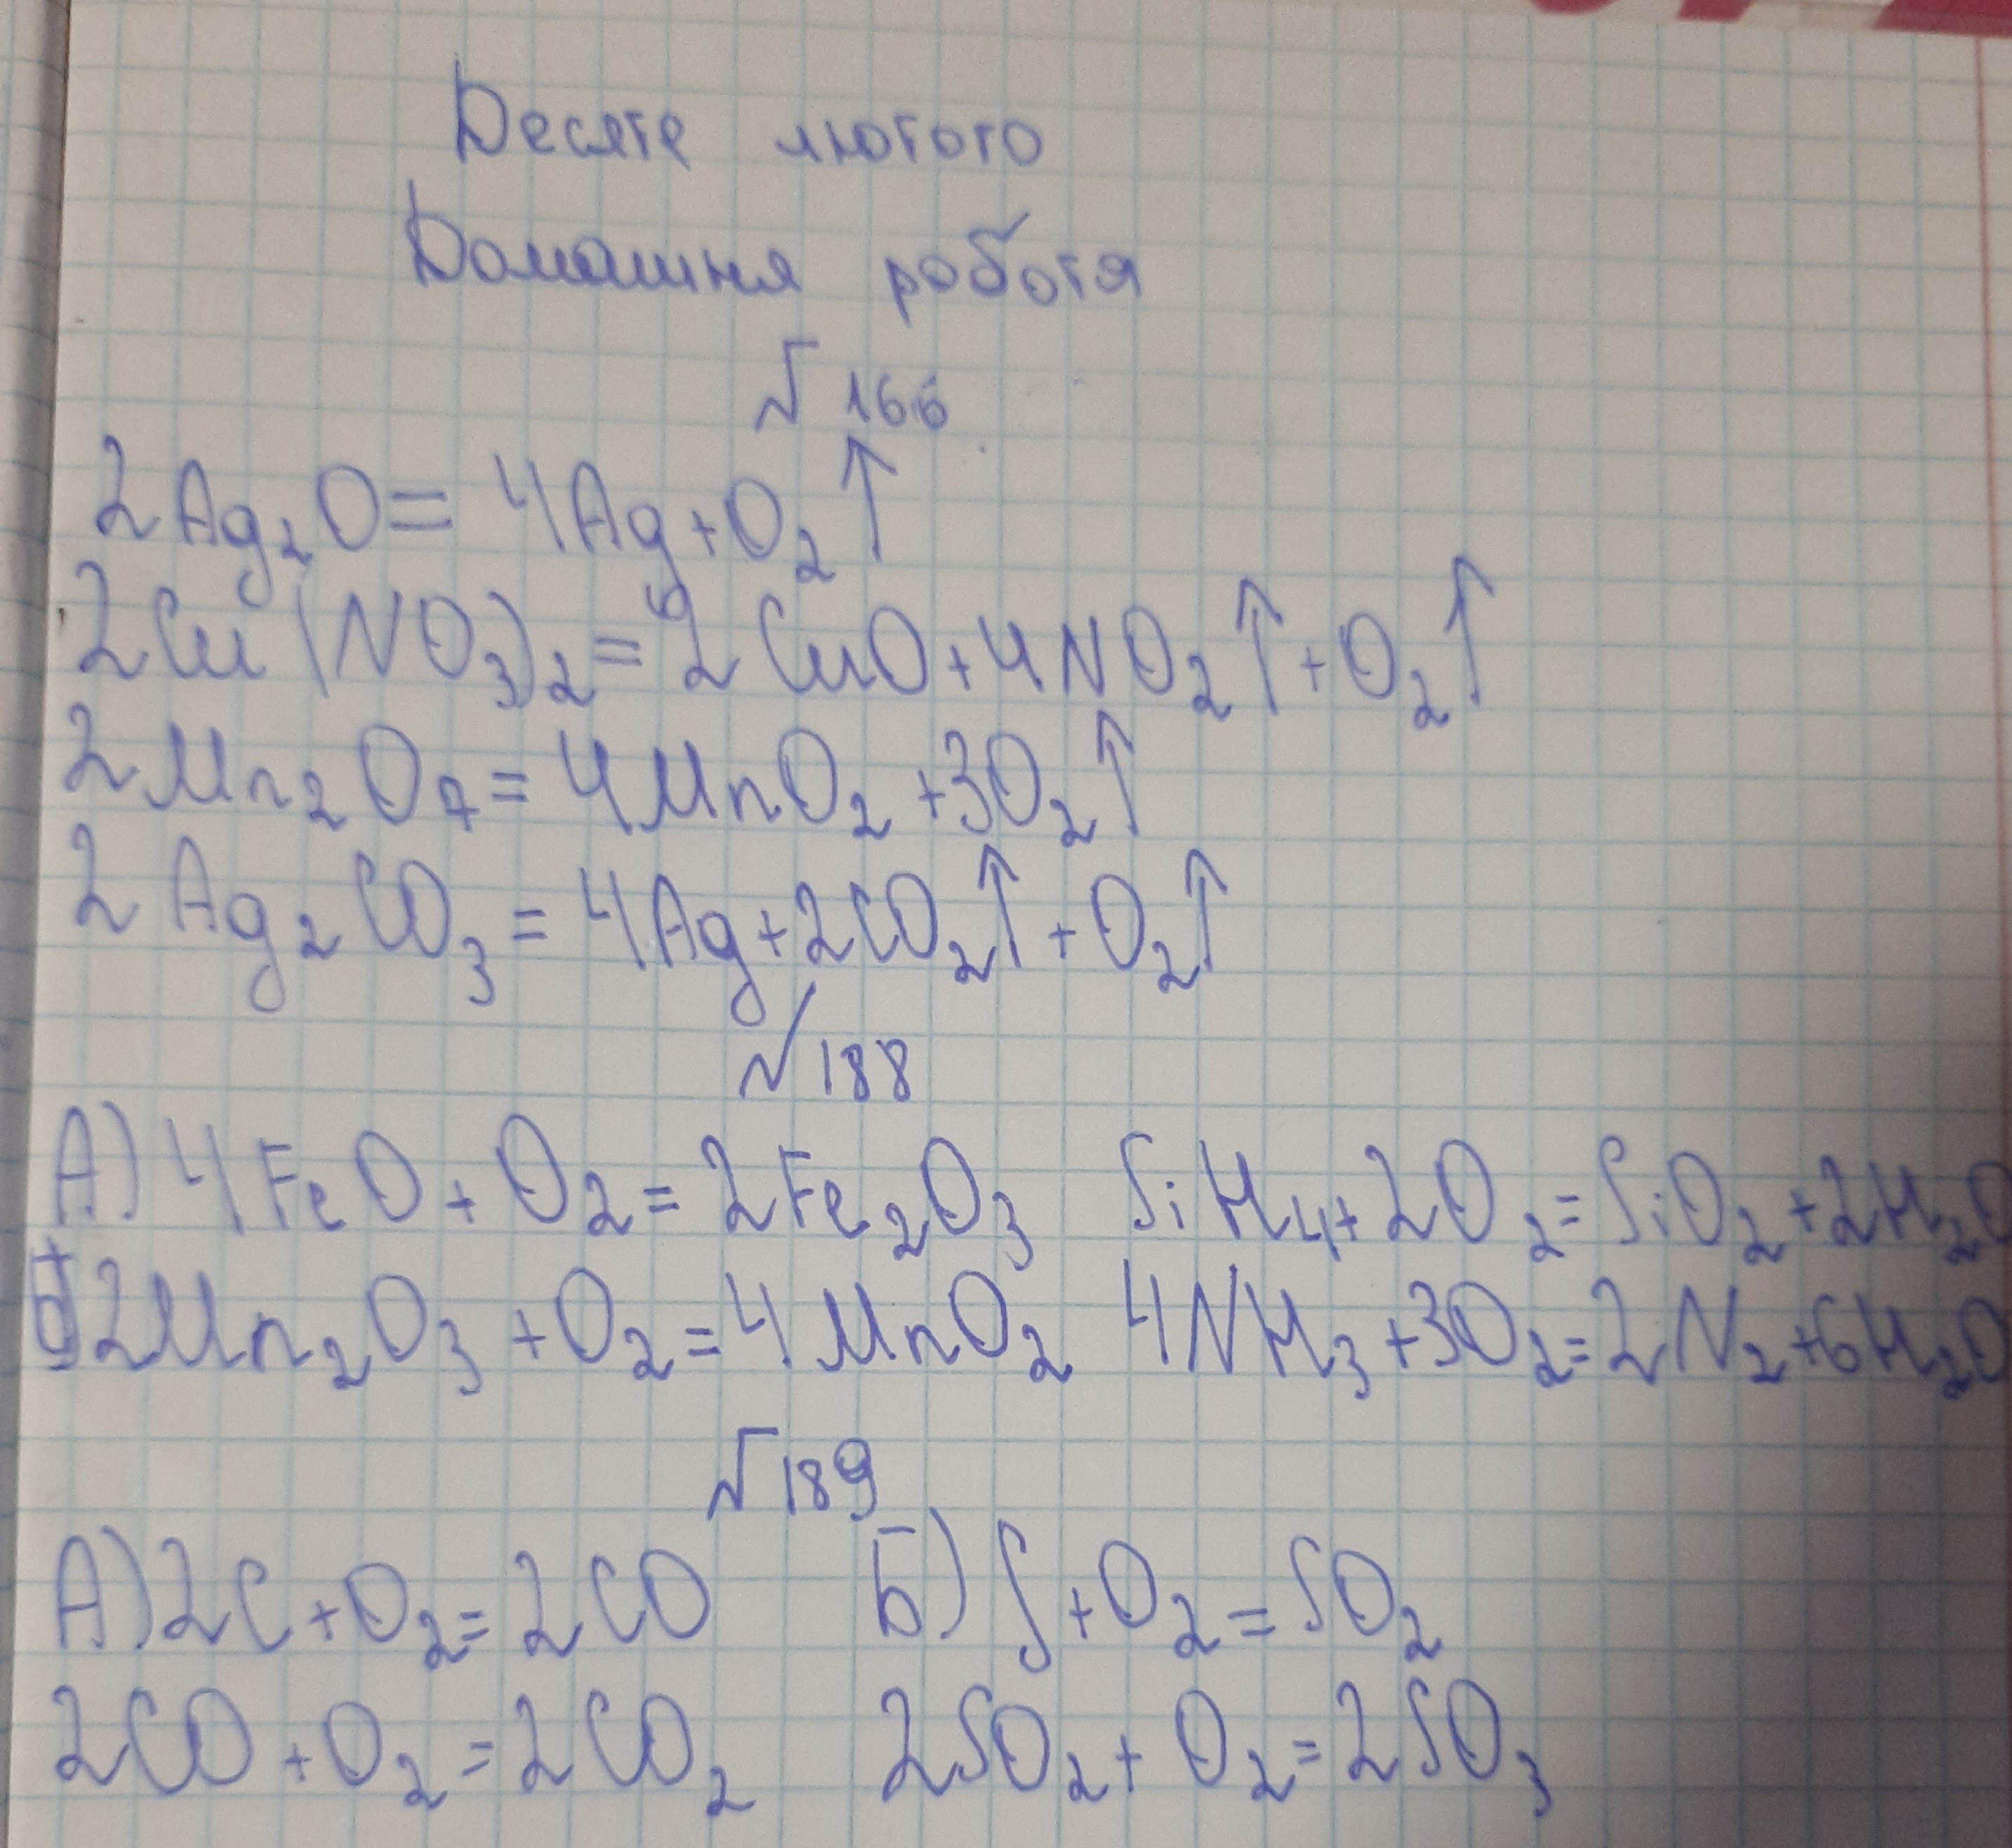 Десяте лютого
Домашня робота
№ 166
2Ag₂O = 4Ag + O₂↑
2Cu(NO₃)₂ = 2CuO + 4NO₂↑ + O₂↑
2Mn₂O₇ = 4MnO₂ + 3O₂↑
2Ag₂CO₃ = 4Ag + 2CO₂↑ + O₂↑
№ 188
А) 4FeO + O₂ = 2Fe₂O₃ SiH₄ + 2O₂ = SiO₂ + 2H₂O
2Mn₂O₃ + O₂ = 4MnO₂ 4NH₃ + 3O₂ = 2N₂ + 6H₂O
№ 189
А) 2C + O₂ = 2CO Б) S + O₂ = SO₂
2CO + O₂ = 2CO₂ 2SO₂ + O₂ = 2SO₃